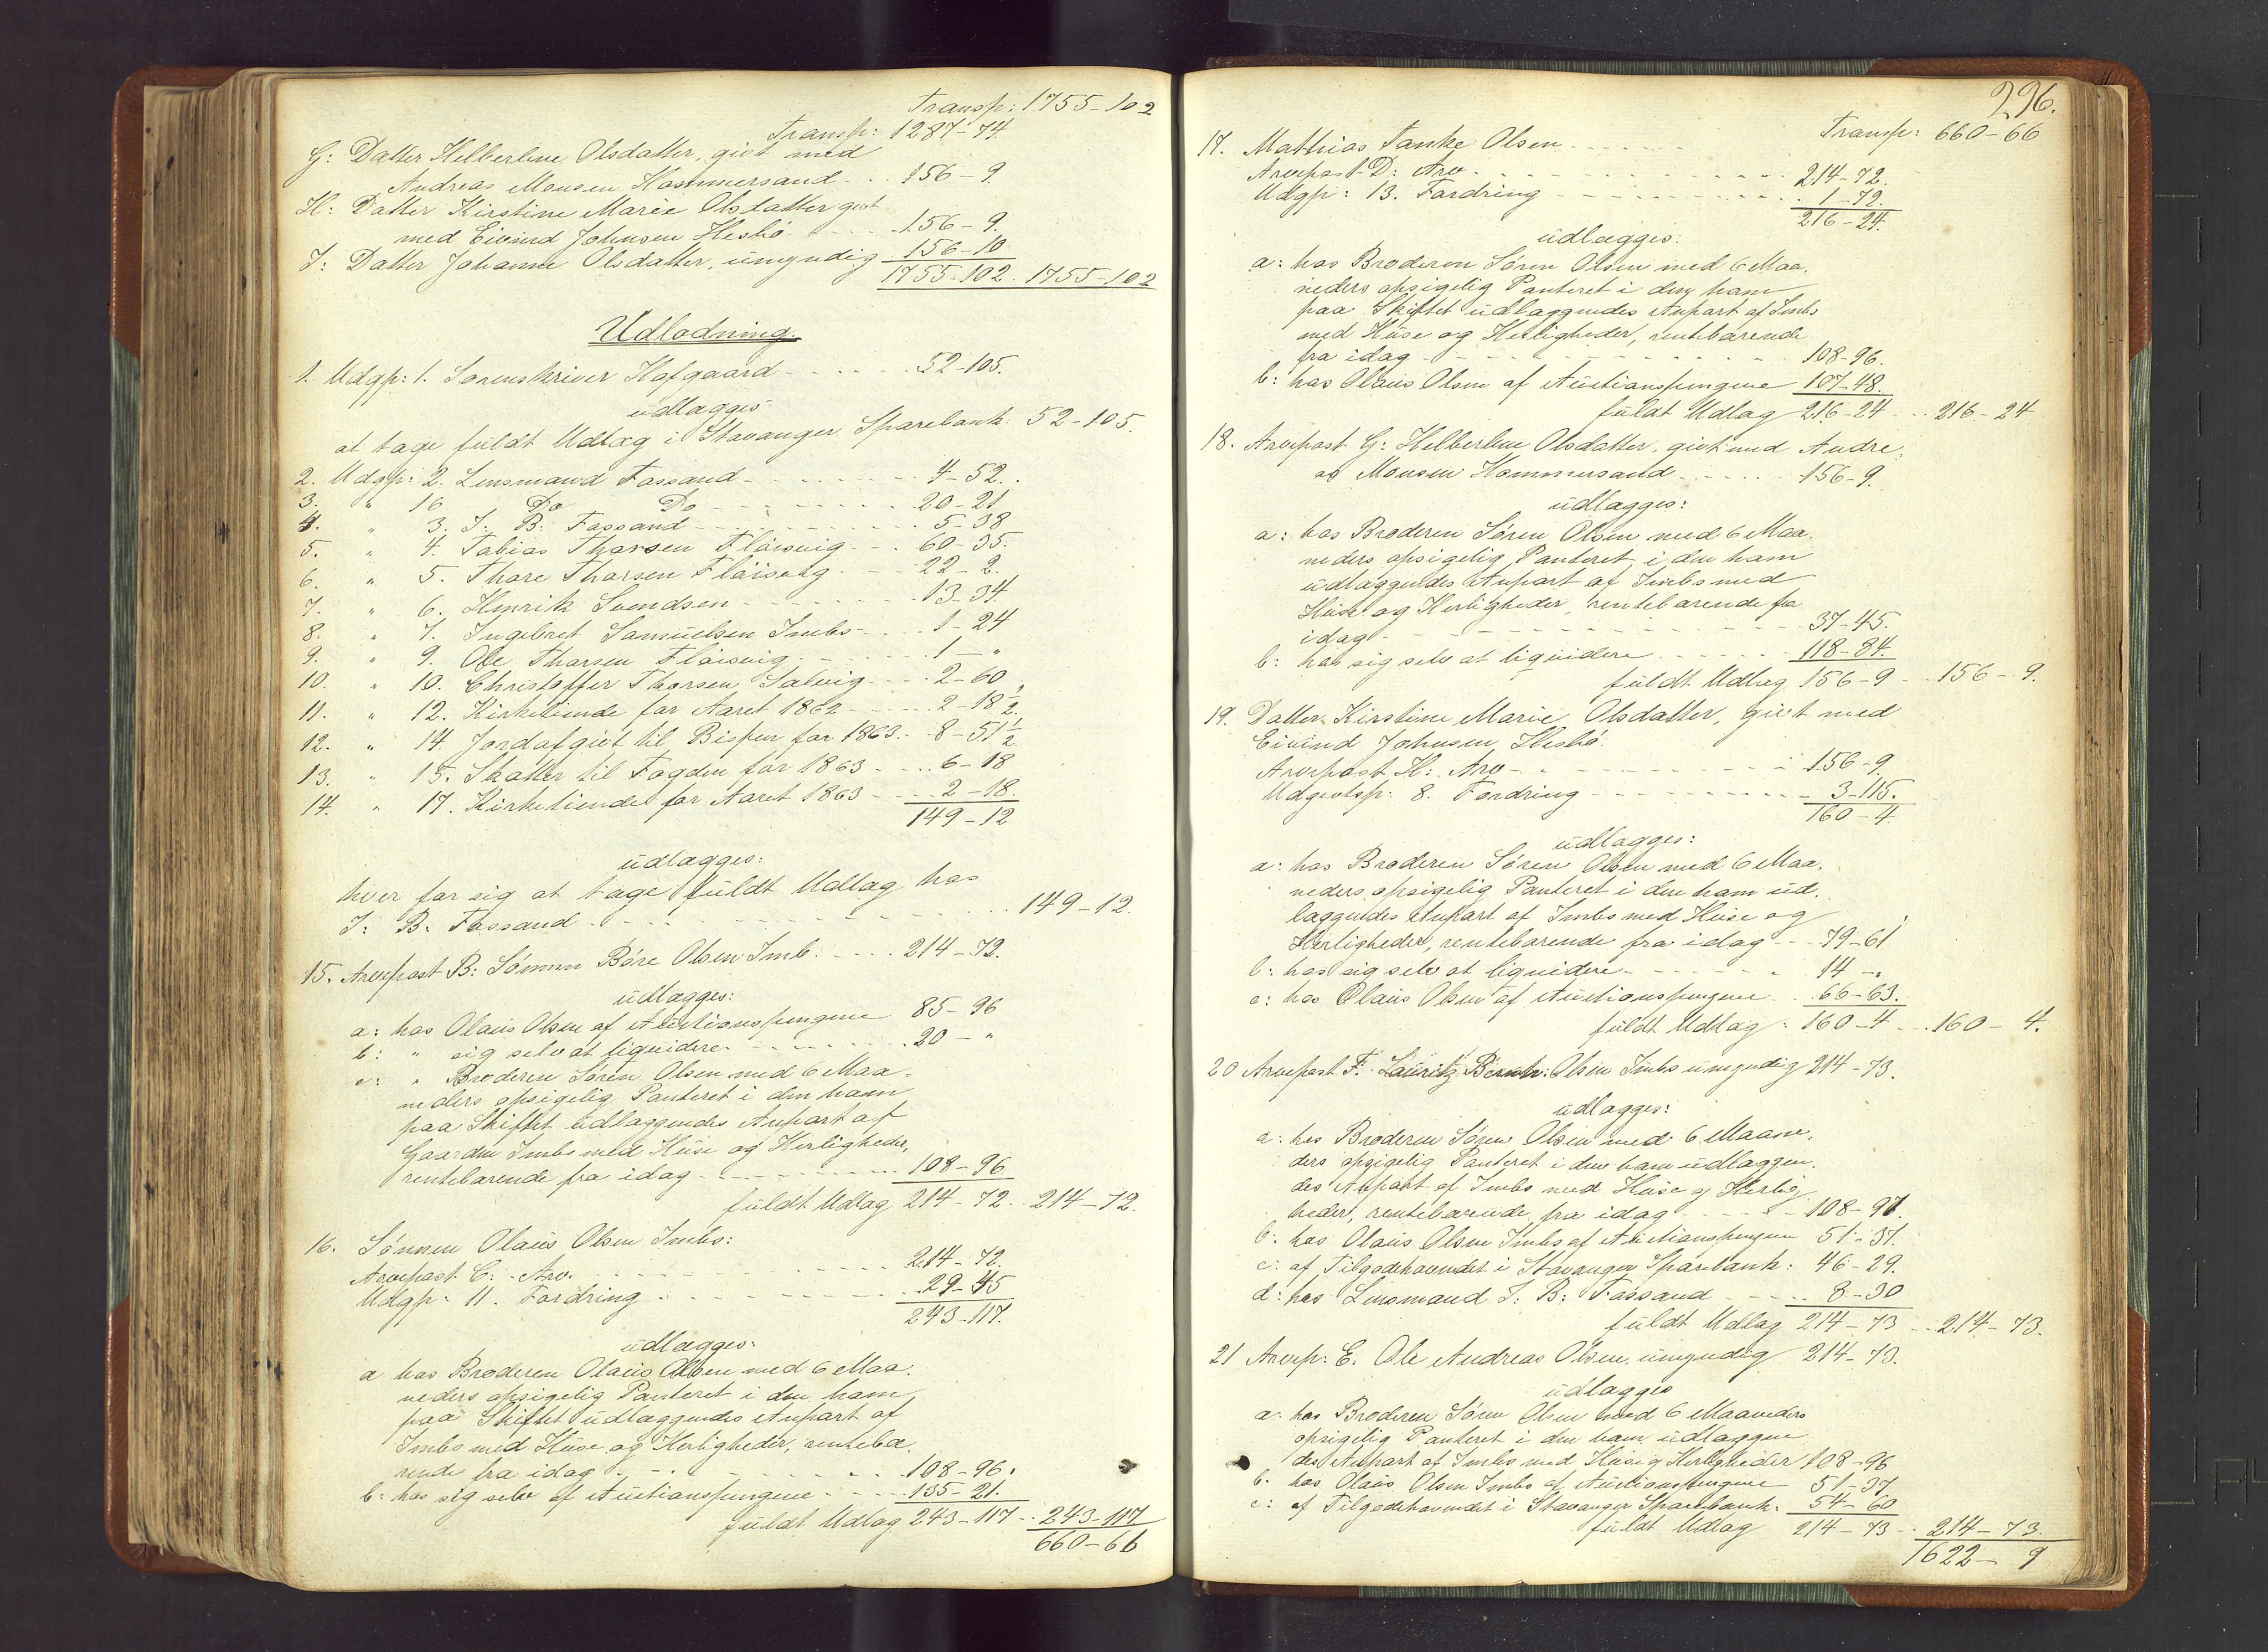 Transp: 1755-102
Transp: 1287-74.
G: Datter Helberline Olsdatter, givt med
Andreas Monsen Hammersand . . 156-9.
H: Datter Kirstine Marie Olsdatter givt
med Eivind Johnsen Hesbö . . . 156-9.
I: Datter Johanne Olsdatter, umyndig 156-10
1755-102. 1755-102
Udlodning.
1. Udgp: 1. Sorenskriver Hofgaard - - - - 52-105.
udlægges
at tage fuldt Udlæg i Stavanger Sparebank. 52-105.
2. Udgp: 2. Lensmand Fossand - - - - 4-52.
3. " 16. Do Do - - - - 20-21
4. " 3. T. B. Fossand - - - - 5-38
5. " 4. Tobias Thorsen Fløisvig - - - 60-35.
6. " 5. Thore Thorsen Fløisvig - - - 22-2.
7. " 6. Henrik Svendsen - - - - 13-34
8. " 7. Ingebret Samuelsen Imbs - - - 1-24
9. " 9. Ole Thorsen Fløisvig - - - 1-"
10. " 10. Christoffer Thorsen Solvig - - - 2-60
11. " 12. Kirketiende for Aaret 1862 - - - 2-18½.
12. " 14. Jordafgivt til Bispen for 1863. - - 8-51½
13. " 15. Skatter til Fogden for 1863 - - - 6-18
14. " 17. Kirketiende for Aaret 1863 - - - 2-18.
149-12
udlægges:
hver for sig at tage fuldt Udlæg hos
T: B: Fossand - - - - 149-12.
15. Arvepost B: Sønnen Børe Olsen Imb. - - - 214-72.
udlægges:
a: hos Olaus Olsen af Auctionspengene 85-96
b: " sig selv at liquidere - - - - 20-"
c: " Broderen Søren Olsen med 6 Maa-
neders opsigelig Panteret i den ham
paa Skiftet udlæggendes Anpart af
Gaarden Imbs med Huse og Herligheder,
rentebærende fra idag - - - - 108-96
fuldt Udlæg 214-72. 214-72.
16. Sønnen Olaus Olsen Imbs:
Arvepost C: Arv. - - - - 214-72.
Udgp: 11. Fordring - - - - 29-45
243-117.
udlægges:
a hos Broderen Olaus Olsen med 6 Maa-
neders opsigelig Panteret i den ham
paa Skiftet udlæggendes Anpart af
Imbs med Huse og Herligheder, rentebæ-
rende fra idag - - - - 108-96.
b: hos sig selv af Auctionspengene - - - 135-21.
fuldt Udlæg 243-117 . . 243-117
660-66
296.
Transp: 660-66
17. Mathias Tanke Olsen - - - -
Arvepost D: Arv. - - - - 214-72.
Udgp: 13. Fordring - - - - 1-72.
216-24.
udlægges:
a: hos Broderen Søren Olsen med 6 Maa-
neders opsigelig Panteret i den ham
paa Skiftet udlæggendes Anpart af Imbs
med Huse og Herligheder, rentebærende
fra idag - - - - 108-96.
b: hos Olaus Olsen af Auctionspengene 107-48.
fuldt Udlæg 216-24 . . 216-24
18. Arvepost G: Helberline Olsdatter, givt med Andre-
as Monsen Hommersand - - - - 156-9.
udlægges:
a: hos Broderen Søren Olsen med 6 Maa-
neders opsigelig Panteret i den ham
udlæggendes Anpart af Imbs med
Huse og Herligheder, rentebærende fra
idag - - - - 37-45.
b: hos sig selv at liquidere - - - - 118-84.
fuldt Udlæg 156-9 . . 156-9.
19. Datter Kirstine Marie Olsdatter, givt med
Eivind Johnsen Hesbö.
Arvepost H: Arv - - - - 156-9.
Udgivtsp: 8. Fordring - - - - 3-115.
160-4.
udlægges:
a: hos Broderen Søren Olsen med 6 Maa-
neders opsigelig Panteret i den ham ud-
læggendes Anpart af Imbs med Huse og
Herligheder, rentebærende fra idag - - 79-61
b: hos sig selv at liquidere - - - - 14-"
c: hos Olaus Olsen af Auctionspengene . . 66-63.
fuldt Udlæg: 160-4 . . 160-4.
20 Arvepost F. Lauritz Bernh: Olsen Imbs umyndig 214-73.
udlægges:
a: hos Broderen Søren Olsen med 6 Maane-
ders opsigelig Panteret i den ham udlæggen-
des Anpart af Imbs med Huse og Herlig-
heder, rentebærende fra idag - - - - 108-97.
b: hos Olaus Olsen Imbs af Auctionspengene 51-37.
c: af Tilgodehavendet i Stavanger Sparebank: 46-29.
d: hos Lensmand T: B: Fossand - - - - 8-30
fuldt Udlæg 214-73 . . 214-73.
21 Arvep: E. Ole Andreas Olsen, umyndig 214-73.
udlægges
a: hos Broderen Søren Olsen med 6 Maaneders
opsigelig Panteret i den ham udlæggen
des Anpart af Imbs med Huse og Herligheder 108-96
b: hos Olaus Olsen Imbs af Auctionspengene 51-37
c: af Tilgodehavendet i Stavanger Sparebank: 54-60
fuldt Udlæg 214-73 . . 214-73.
1622-9